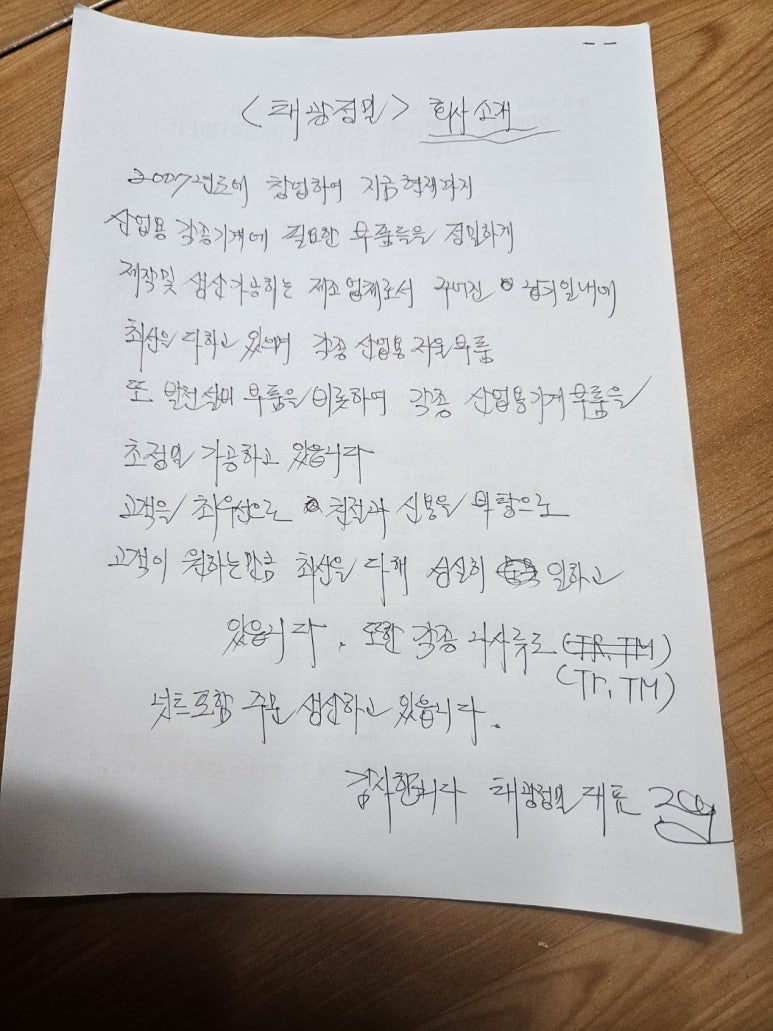 <태광정밀> 회사소개
2007년도에 창업하여 지금현재까지
산업용 각종기계에 필요한 부품들을 정밀하게
제작및 생산가공하는 제조업체로서 꾸며진
최선을 다하고 있으며 각종 산업용 자동부품
또 발전설비 부품을 비롯하여 각종 산업용기계부품을
초정밀 가공하고 있읍니다
고객을 최우선으로 친절과 신용을 바탕으로
고객이 원하는만큼 최선을 다해 성실히 일하고
있읍니다. 또한 각종 나사류도
(Tr, TM)
넛트포함 주문 생산하고 있읍니다.
감사합니다 태광정밀 대표